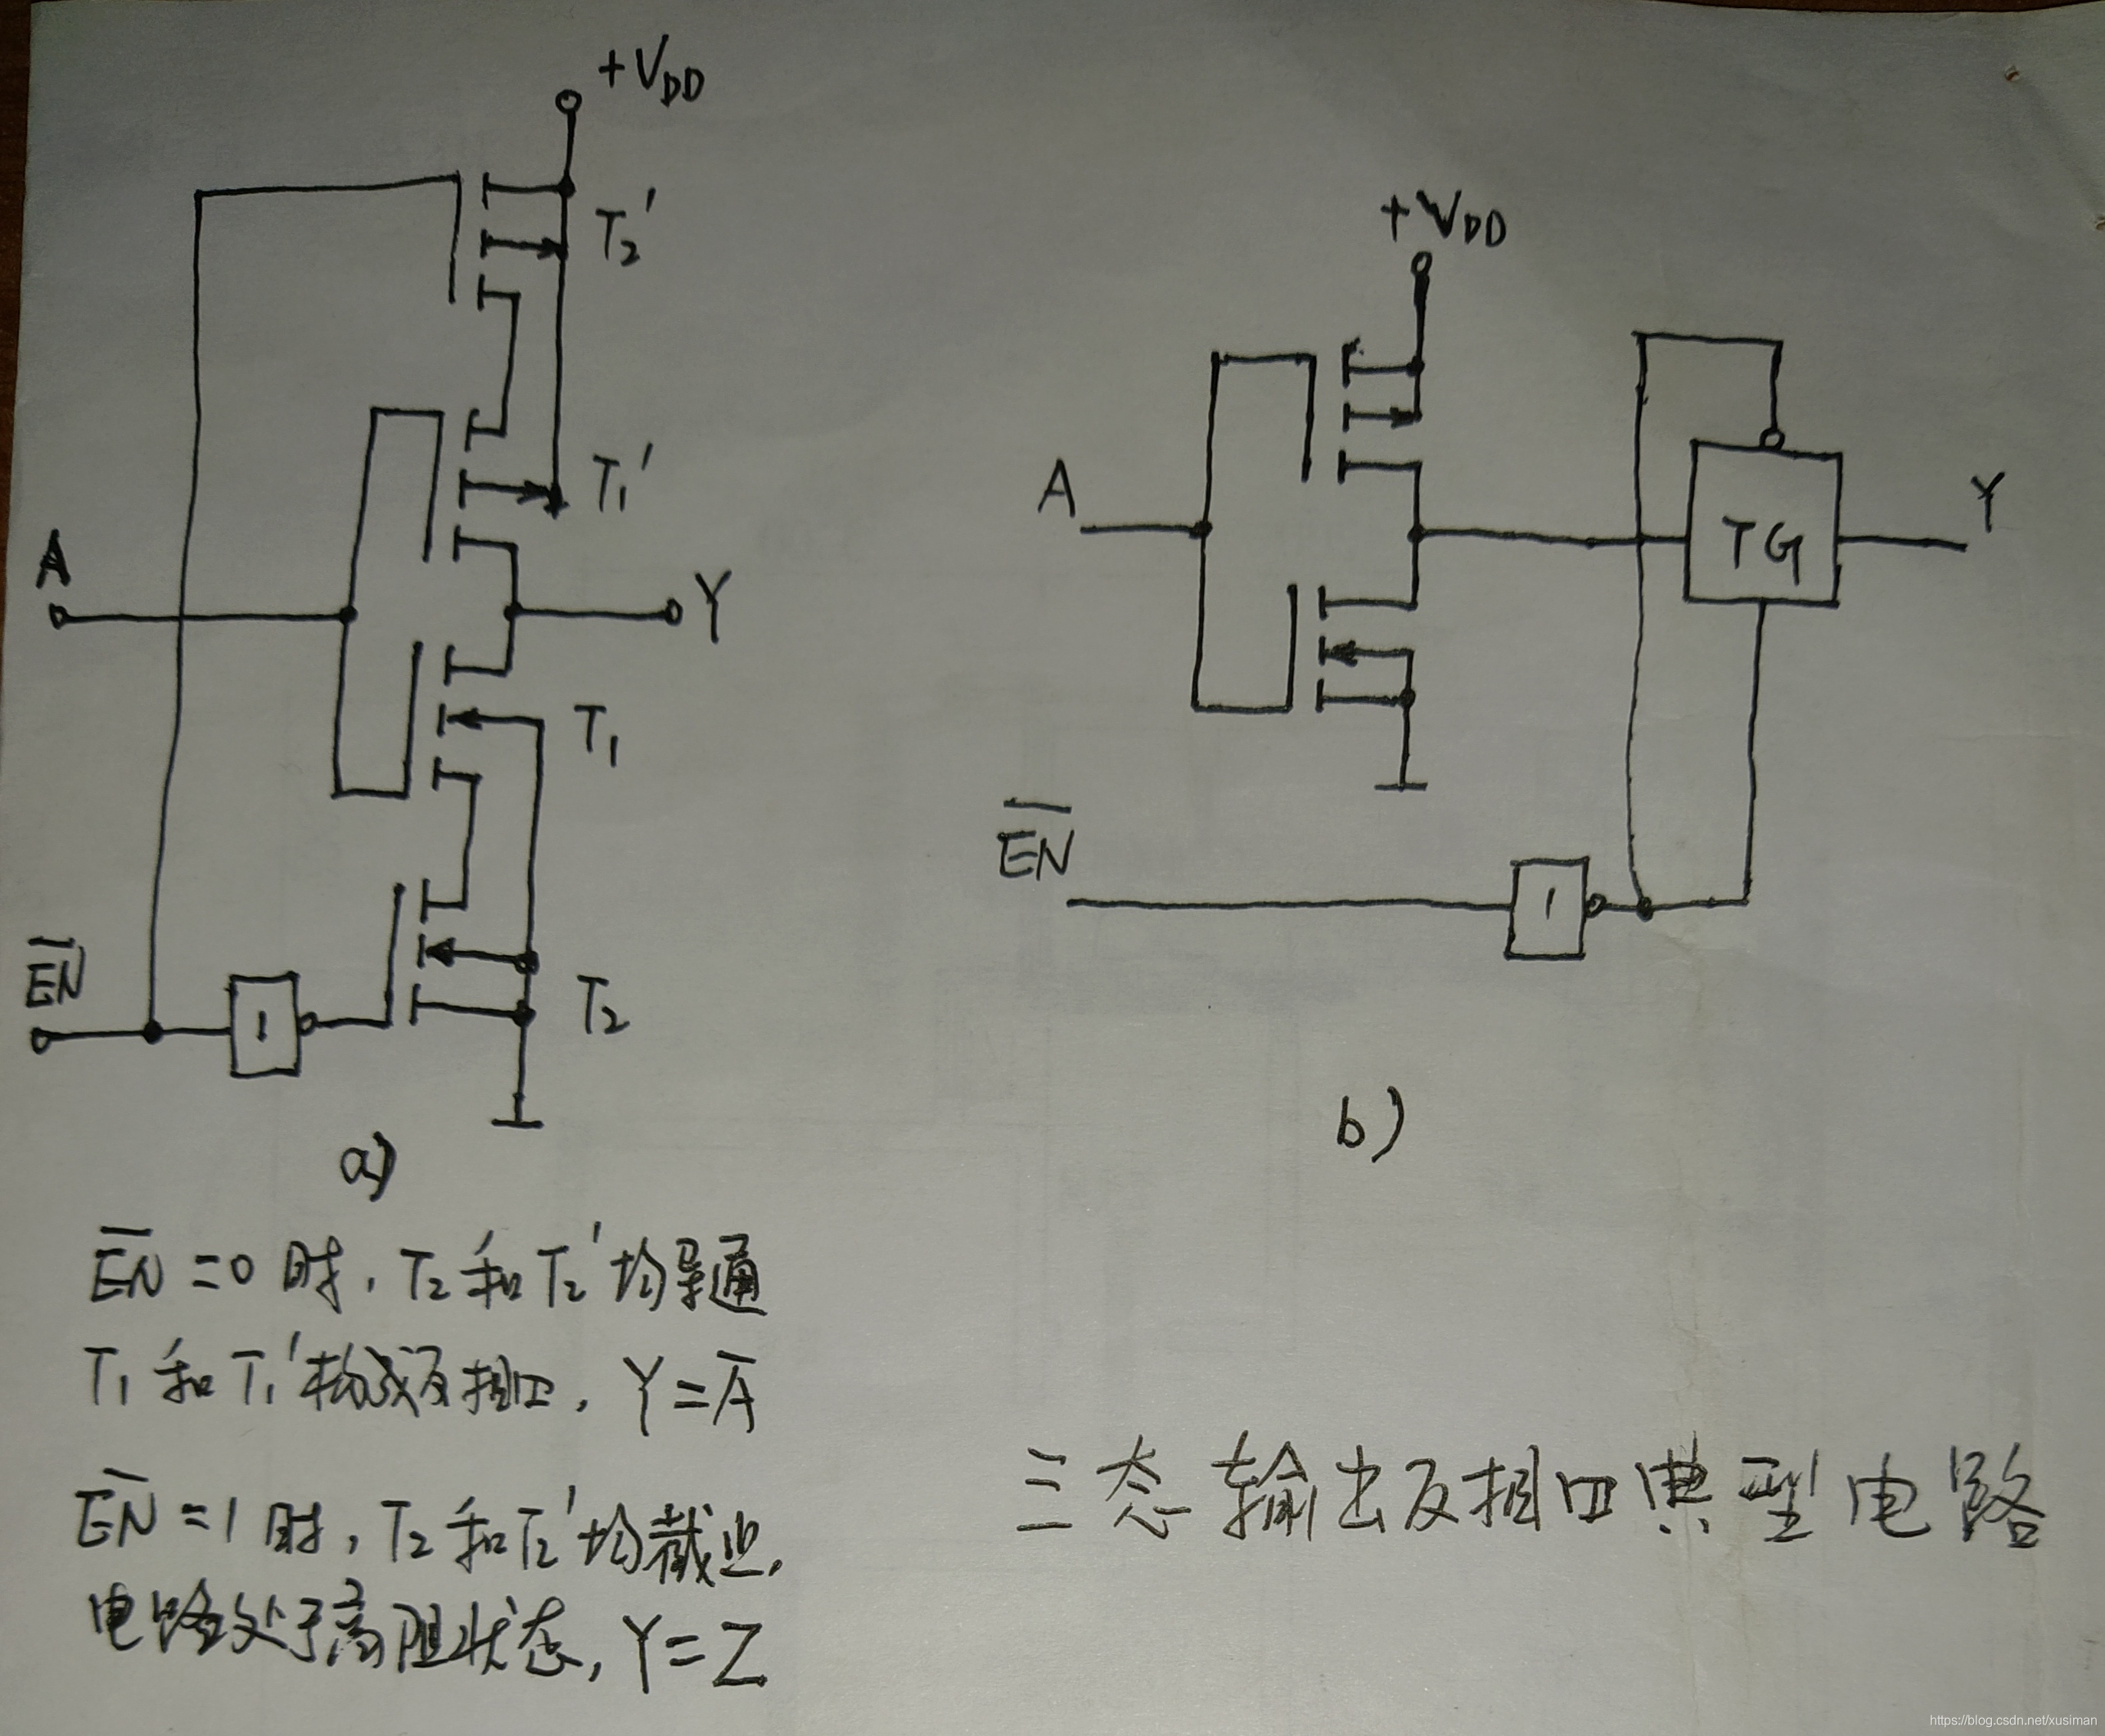 +VDD
T2'
T1'
A
Y
T1
EN̅
1
T2
a)
+VDD
A
TG
Y
EN̅
1
b)
EN̅=0时,T2和T2'均导通
T1和T1'构成反相口,Y=A̅
EN̅=1时,T2和T2'均截止,
电路处于高阻状态,Y=Z
三态输出反相口典型电路
https://blog.csdn.net/xusiman